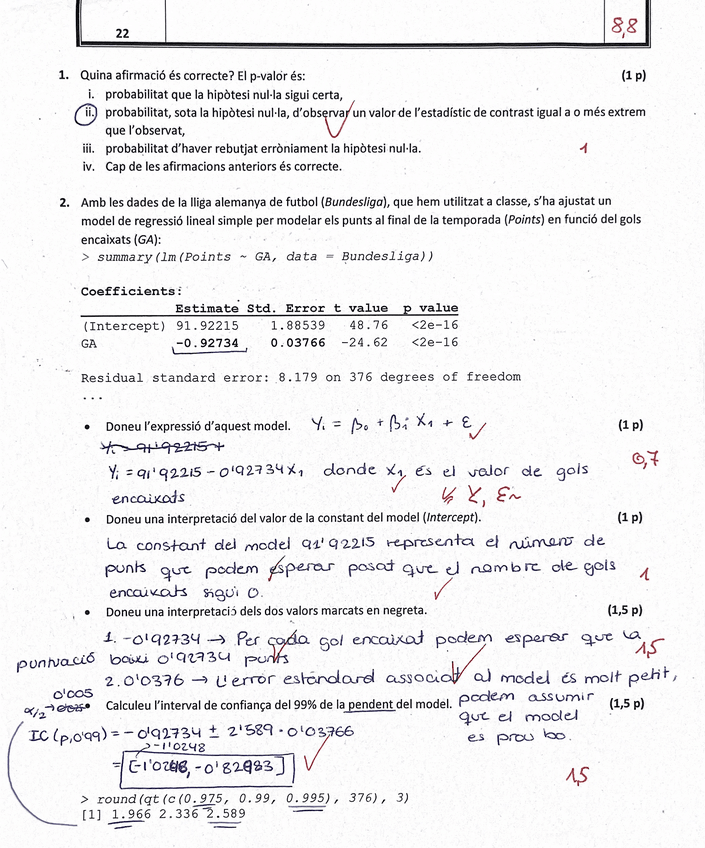 22
8,8
1. Quina afirmació és correcte? El p-valor és: (1 p)
i. probabilitat que la hipòtesi nul·la sigui certa,
ii. probabilitat, sota la hipòtesi nul·la, d'observar un valor de l'estadístic de contrast igual a o més extrem
que l'observat,
iii. probabilitat d'haver rebutjat erròniament la hipòtesi nul·la. 1
iv. Cap de les afirmacions anteriors és correcte.
2. Amb les dades de la lliga alemanya de futbol (Bundesliga), que hem utilitzat a classe, s'ha ajustat un
model de regressió lineal simple per modelar els punts al final de la temporada (Points) en funció del gols
encaixats (GA):
> summary(lm(Points ~ GA, data = Bundesliga))
Coefficients:
Estimate Std. Error t value p value
(Intercept) 91.92215 1.88539 48.76 <2e-16
GA -0.92734 0.03766 -24.62 <2e-16
Residual standard error: 8.179 on 376 degrees of freedom
...
• Doneu l'expressió d'aquest model. Yi = β0 + βi X1 + ε (1 p)
Yi = 91'92215 +
Yi = 91'92215 - 0'92734 X1 donde X1 es el valor de gols 0,7
encaixats
• Doneu una interpretació del valor de la constant del model (Intercept). (1 p)
La constant del model 91'92215 representa el número de
punts que podem esperar posat que el nombre de gols 1
encaixats sigui 0.
• Doneu una interpretació dels dos valors marcats en negreta. (1,5 p)
1. -0'92734 → Per cada gol encaixat podem esperar que la 1,5
puntuació baixi 0'92734 punts
2. 0'0376 → L'error estàndard associat al model és molt petit,
podem assumir
que el model
es prou bo.
0'005
α/2 →
• Calculeu l'interval de confiança del 99% de la pendent del model. (1,5 p)
IC (p, 0'99) = -0'92734 ± 2'589 · 0'03766
-1'0248
= [-1'0248, -0'82983]
1,5
> round(qt(c(0.975, 0.99, 0.995), 376), 3)
[1] 1.966 2.336 2.589